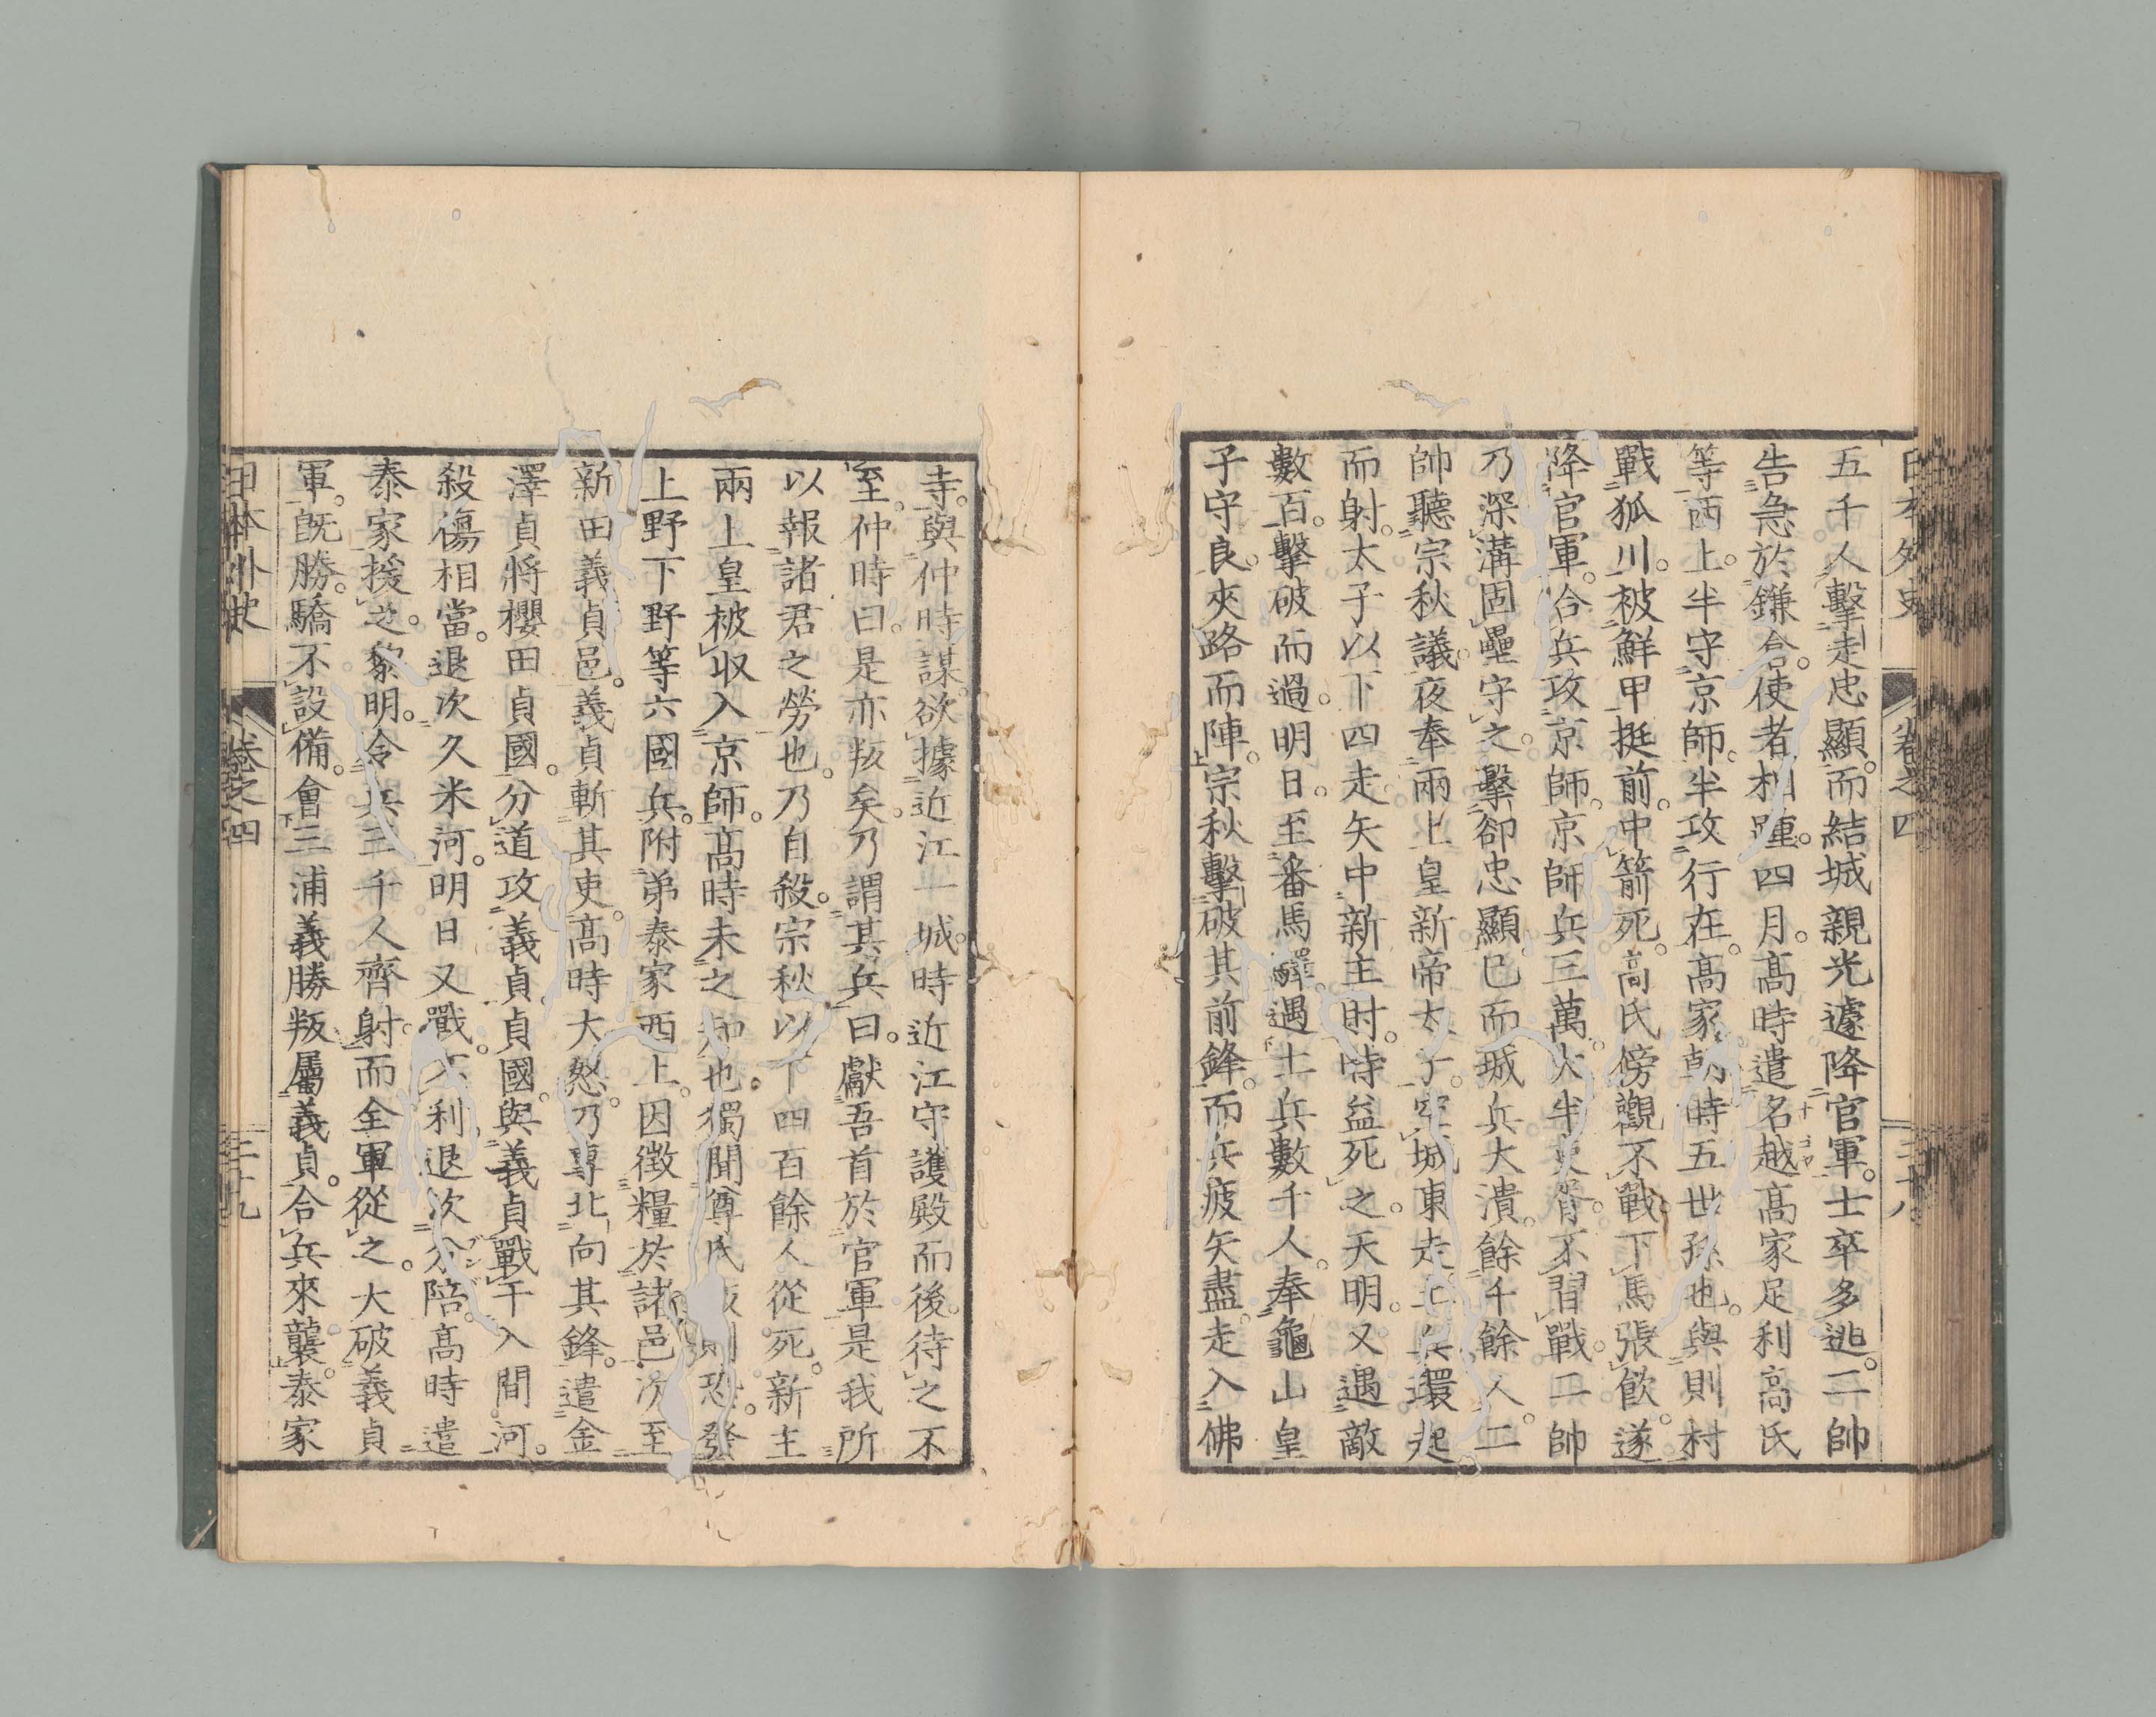 日本外史 卷之四 三十八
五千人擊走忠顯。而結城親光遽降官軍。士卒多逃。二帥
告急於鎌倉。使者相踵。四月。高時遣名越高家足利高氏
等西上。半守京師。半攻行在。高家朝時五世孫也。與則村
戰狐川。被鮮甲挺前。中箭死。高氏傍觀不戰。下馬張飮。遂
降官軍。合兵攻京師。京師兵三萬。大半吏胥。不習戰。二帥
乃深溝固壘守之。擊卻忠顯。已而城兵大潰。餘千餘人。二
帥聽宗秋議。夜奉兩上皇新帝太子。空城東走。土兵環起
而射。太子以下四走。矢中新主肘。時益死之。天明。又遇敵
數百。擊破而過。明日。至番馬驛。遇土兵數千人。奉龜山皇
子守良。夾路而陣。宗秋擊破其前鋒。而兵疲矢盡。走入佛
寺。與仲時謀。欲據近江一城。時近江守護殿而後。待之不
至。仲時曰。是亦叛矣。乃謂其兵曰。獻吾首於官軍。是我所
以報諸君之勞也。乃自殺。宗秋以下四百餘人從死。新主
兩上皇被收入京師。高時未之知也。獨聞尊氏 則恐。發
上野下野等六國兵。附弟泰家西上。因徵糧於諸邑。次至
新田義貞邑。義貞斬其吏。高時大怒。乃專北向其鋒。遣金
澤貞將櫻田貞國。分道攻義貞。貞國與義貞戰于入間河。
殺傷相當。退次久米河。明日又戰。不利退次分陪。高時遣
泰家援之。黎明。令兵三千人齊射。而全軍從之。大破義貞
軍。旣勝。驕不設備。會三浦義勝叛屬義貞。合兵來襲。泰家
日本外史 卷之四 三十九